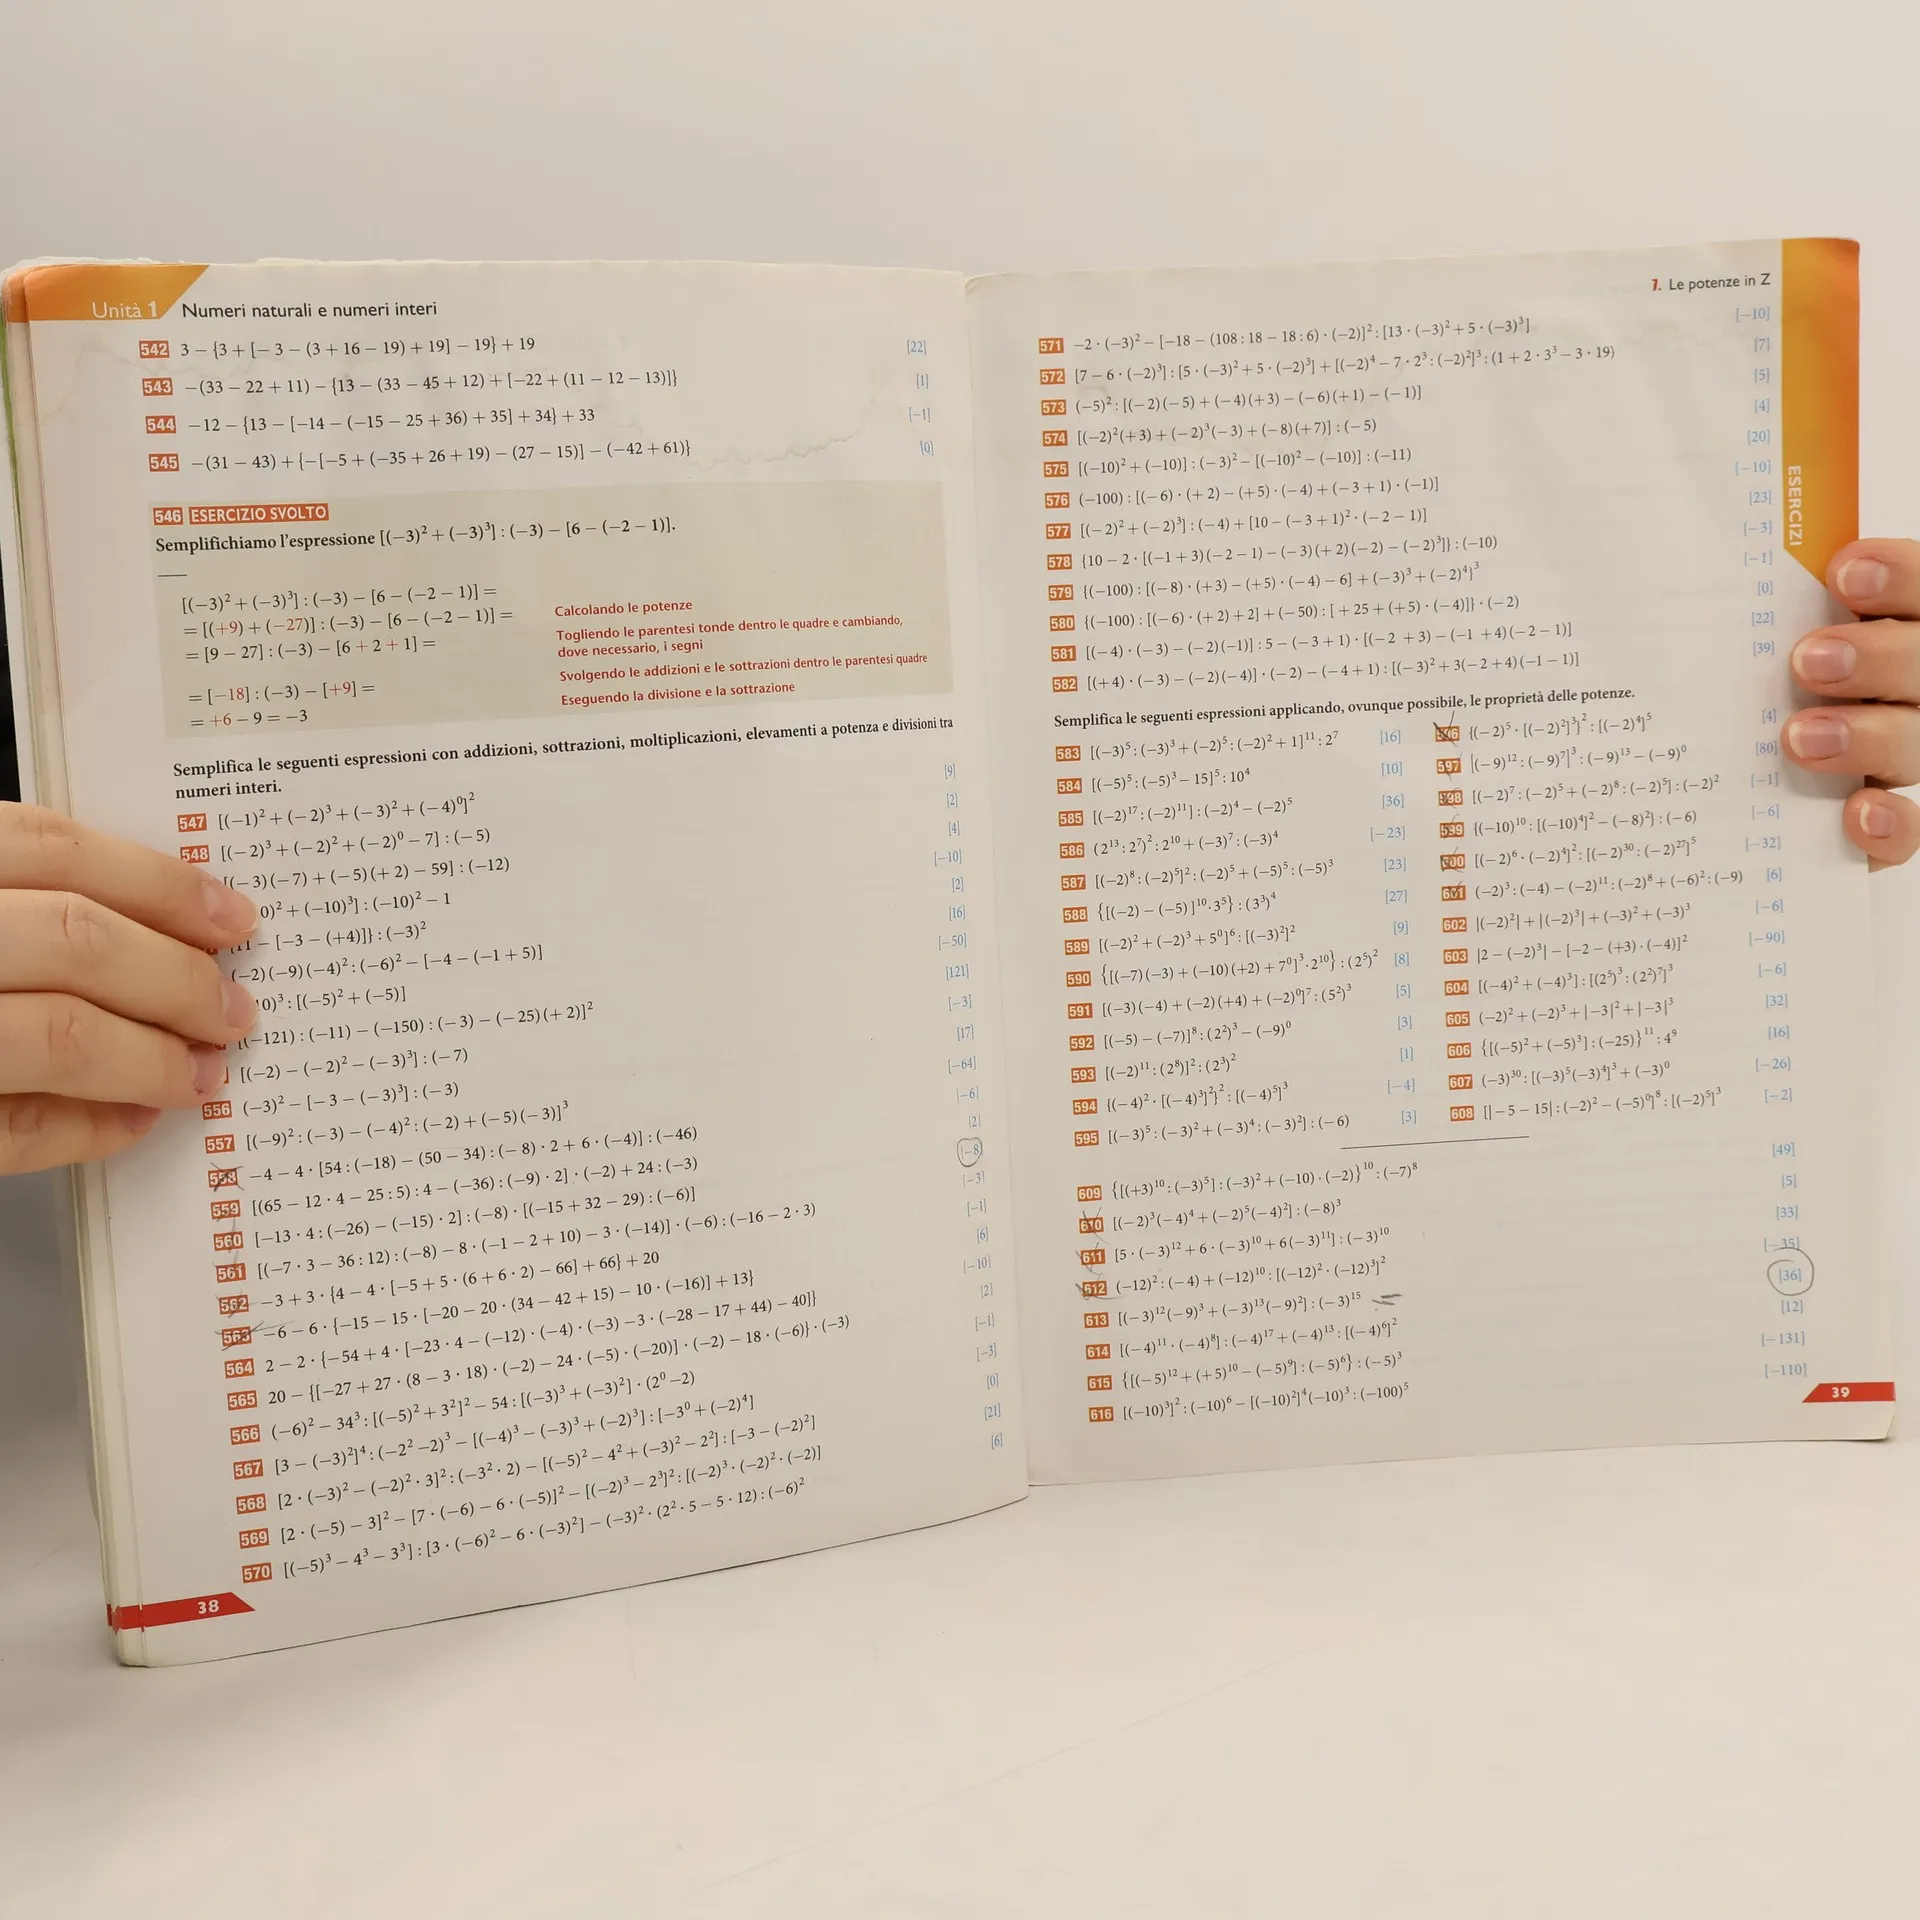 Unità 1 Numeri naturali e numeri interi
542 3 − {3 + [− 3 − (3 + 16 − 19) + 19] − 19} + 19 [22]
543 −(33 − 22 + 11) − {13 − (33 − 45 + 12) + [−22 + (11 − 12 − 13)]} [1]
544 −12 − {13 − [−14 − (−15 − 25 + 36) + 35] + 34} + 33 [−1]
545 −(31 − 43) + {−[−5 + (−35 + 26 + 19) − (27 − 15)] − (−42 + 61)} [0]
546 ESERCIZIO SVOLTO
Semplifichiamo l'espressione [(−3)² + (−3)³] : (−3) − [6 − (−2 − 1)].
[(−3)² + (−3)³] : (−3) − [6 − (−2 − 1)] =
= [(+9) + (−27)] : (−3) − [6 − (−2 − 1)] = Calcolando le potenze
= [9 − 27] : (−3) − [6 + 2 + 1] = Togliendo le parentesi tonde dentro le quadre e cambiando,
dove necessario, i segni
= [−18] : (−3) − [+9] = Svolgendo le addizioni e le sottrazioni dentro le parentesi quadre
= +6 − 9 = −3 Eseguendo la divisione e la sottrazione
Semplifica le seguenti espressioni con addizioni, sottrazioni, moltiplicazioni, elevamenti a potenza e divisioni tra
numeri interi.
547 [(−1)² + (−2)³ + (−3)² + (−4)⁰]² [9]
548 [(−2)³ + (−2)² + (−2)⁰ − 7] : (−5) [2]
[(−3)(−7) + (−5)(+2) − 59] : (−12) [4]
0)² + (−10)³] : (−10)² − 1 [−10]
11 − [−3 − (+4)]} : (−3)² [2]
(−2)(−9)(−4)² : (−6)² − [−4 − (−1 + 5)] [16]
10)³ : [(−5)² + (−5)] [−50]
[(−121) : (−11) − (−150) : (−3) − (−25)(+2)]² [121]
[(−2) − (−2)² − (−3)³] : (−7) [−3]
556 (−3)² − [−3 − (−3)³] : (−3) [17]
557 [(−9)² : (−3) − (−4)² : (−2) + (−5)(−3)]³ [−64]
558 −4 − 4 · [54 : (−18) − (50 − 34) : (− 8) · 2 + 6 · (−4)] : (−46) [−6]
559 [(65 − 12 · 4 − 25 : 5) : 4 − (−36) : (−9) · 2] · (−2) + 24 : (−3) [2]
560 [−13 · 4 : (−26) − (−15) · 2] : (−8) · [(−15 + 32 − 29) : (−6)] [−8]
561 [(−7 · 3 − 36 : 12) : (−8) − 8 · (−1 − 2 + 10) − 3 · (−14)] · (−6) : (−16 − 2 · 3) [−3]
562 −3 + 3 · {4 − 4 · [−5 + 5 · (6 + 6 · 2) − 66] + 66} + 20 [−1]
563 −6 − 6 · {−15 − 15 · [−20 − 20 · (34 − 42 + 15) − 10 · (−16)] + 13} [6]
564 2 − 2 · {−54 + 4 · [−23 · 4 − (−12) · (−4) · (−3) −3 · (−28 − 17 + 44) − 40]} [−10]
565 20 − {[−27 + 27 · (8 − 3 · 18) · (−2) − 24 · (−5) · (−20)] · (−2) − 18 · (−6)} · (−3) [2]
566 (−6)² − 34³ : [(−5)² + 3²]² − 54 : [(−3)³ + (−3)²] · (2⁰ −2) [−1]
567 [3 − (−3)²]⁴ : (−2² −2)³ − [(−4)³ − (−3)³ + (−2)³] : [−3⁰ + (−2)⁴] [−3]
568 [2 · (−3)² − (−2)² · 3]² : (−3² · 2) − [(−5)² − 4² + (−3)² − 2²] : [−3 − (−2)²] [0]
569 [2 · (−5) − 3]² − [7 · (−6) − 6 · (−5)]² − [(−2)³ − 2³]² : [(−2)³ · (−2)² · (−2)] [21]
570 [(−5)³ − 4³ − 3³] : [3 · (−6)² − 6 · (−3)²] − (−3)² · (2² · 5 − 5 · 12) : (−6)² [6]
38
7. Le potenze in Z
ESERCIZI
571 −2 · (−3)² − [−18 − (108 : 18 − 18 : 6) · (−2)]² : [13 · (−3)² + 5 · (−3)³] [−10]
572 [7 − 6 · (−2)³] : [5 · (−3)² + 5 · (−2)³] + [(−2)⁴ − 7 · 2³ : (−2)²]³ : (1 + 2 · 3³ − 3 · 19) [7]
573 (−5)² : [(−2)(−5) + (−4)(+3) − (−6)(+1) − (−1)] [5]
574 [(−2)²(+3) + (−2)³(−3) + (−8)(+7)] : (−5) [4]
575 [(−10)² + (−10)] : (−3)² − [(−10)² − (−10)] : (−11) [20]
576 (−100) : [(−6) · (+ 2) − (+5) · (−4) + (−3 + 1) · (−1)] [−10]
577 [(−2)² + (−2)³] : (−4) + [10 − (−3 + 1)² · (−2 − 1)] [23]
578 {10 − 2 · [(−1 + 3)(−2 − 1) − (−3)(+2)(−2) − (−2)³]} : (−10) [−3]
579 {(−100) : [(−8) · (+3) − (+5) · (−4) − 6] + (−3)³ + (−2)⁴}³ [−1]
580 {(−100) : [(−6) · (+2) + 2] + (−50) : [+ 25 + (+5) · (−4)]} · (−2) [0]
581 [(−4) · (−3) − (−2)(−1)] : 5 − (−3 + 1) · [(−2 + 3) − (−1 + 4)(−2 − 1)] [22]
582 [(+4) · (−3) − (−2)(−4)] · (−2) − (−4 + 1) : [(−3)² + 3(−2 + 4)(−1 − 1)] [39]
Semplifica le seguenti espressioni applicando, ovunque possibile, le proprietà delle potenze.
583 [(−3)⁵ : (−3)³ + (−2)⁵ : (−2)² + 1]¹¹ : 2⁷ [16]
584 [(−5)⁵ : (−5)³ − 15]⁵ : 10⁴ [10]
585 [(−2)¹⁷ : (−2)¹¹] : (−2)⁴ − (−2)⁵ [36]
586 (2¹³ : 2⁷)² : 2¹⁰ + (−3)⁷ : (−3)⁴ [−23]
587 [(−2)⁸ : (−2)⁵]² : (−2)⁵ + (−5)⁵ : (−5)³ [23]
588 {[(−2) − (−5)]¹⁰ · 3⁵} : (3³)⁴ [27]
589 [(−2)² + (−2)³ + 5⁰]⁶ : [(−3)²]² [9]
590 {[(−7)(−3) + (−10)(+2) + 7⁰]³ · 2¹⁰} : (2⁵)² [8]
591 [(−3)(−4) + (−2)(+4) + (−2)⁰]⁷ : (5²)³ [5]
592 [(−5) − (−7)]⁸ : (2²)³ − (−9)⁰ [3]
593 [(−2)¹¹ : (2⁸)]² : (2³)² [1]
594 {(−4)² · [(−4)³]²}² : [(−4)⁵]³ [−4]
595 [(−3)⁵ : (−3)² + (−3)⁴ : (−3)²] : (−6) [3]
596 {(−2)⁵ · [(−2)²]³}² : [(−2)⁴]⁵ [4]
597 [(−9)¹² : (−9)⁷]³ : (−9)¹³ − (−9)⁰ [80]
598 [(−2)⁷ : (−2)⁵ + (−2)⁸ : (−2)⁵] : (−2)² [−1]
599 {(−10)¹⁰ : [(−10)⁴]² − (−8)²} : (−6) [−6]
600 [(−2)⁶ · (−2)⁴]² : [(−2)³⁰ : (−2)²⁷]⁵ [−32]
601 (−2)³ : (−4) − (−2)¹¹ : (−2)⁸ + (−6)² : (−9) [6]
602 |(−2)²| + |(−2)³| + (−3)² + (−3)³ [−6]
603 |2 − (−2)³| − [−2 − (+3) · (−4)]² [−90]
604 [(−4)² + (−4)³] : [(2⁵)³ : (2²)⁷]³ [−6]
605 (−2)² + (−2)³ + |−3|² + |−3|³ [32]
606 {[(−5)² + (−5)³] : (−25)}¹¹ : 4⁹ [16]
607 (−3)³⁰ : [(−3)⁵(−3)⁴]³ + (−3)⁰ [−26]
608 [|−5 − 15| : (−2)² − (−5)⁰]⁸ : [(−2)⁵]³ [−2]
609 {[(+3)¹⁰ : (−3)⁵] : (−3)² + (−10) · (−2)}¹⁰ : (−7)⁸ [49]
610 [(−2)³(−4)⁴ + (−2)⁵(−4)²] : (−8)³ [5]
611 [5 · (−3)¹² + 6 · (−3)¹⁰ + 6(−3)¹¹] : (−3)¹⁰ [33]
612 (−12)² : (−4) + (−12)¹⁰ : [(−12)² · (−12)³]² [−35]
613 [(−3)¹²(−9)³ + (−3)¹³(−9)²] : (−3)¹⁵ = [36]
614 [(−4)¹¹ · (−4)⁸] : (−4)¹⁷ + (−4)¹³ : [(−4)⁶]² [12]
615 {[(−5)¹² + (+5)¹⁰ − (−5)⁹] : (−5)⁶} : (−5)³ [−131]
616 [(−10)³]² : (−10)⁶ − [(−10)²]⁴(−10)³ : (−100)⁵ [−110]
39